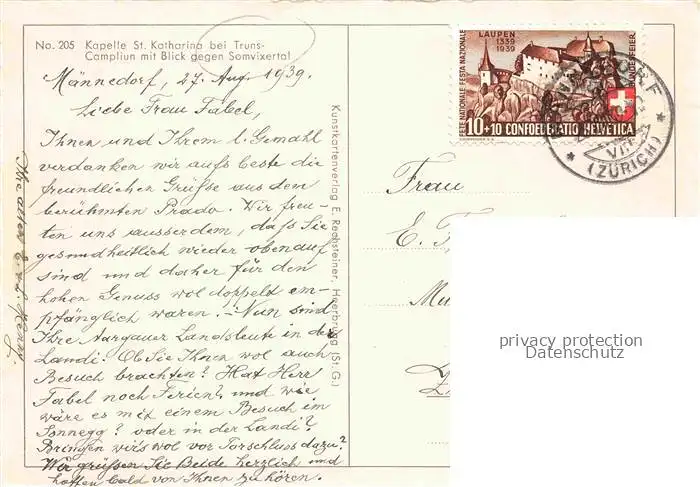 No. 205 Kapelle St. Katharina bei Truns-
Campliun mit Blick gegen Somvixertal
Männedorf, 27. Aug. 1939.
Liebe Frau Fabel,
Ihnen und Ihrem l. Gemahl
verdanken wir aufs beste die
freundlichen Grüsse aus dem
berühmten Prado. Wir freu-
ten uns ausserdem, dass Sie
gesundheitlich wieder obenauf
sind und daher für den
hohen Genuss wol doppelt em-
pfänglich waren. - Nun sind
Ihre Aargauer Landsleute in der
Landi. Ob Sie Ihnen wol auch
Besuch brachten? Hat Herr
Fabel noch Ferien? und wie
wäre es mit einem Besuch im
Sonnegg? oder in der Landi?
Bringen wir's wol vor Torschluss dazu?
Wir grüssen Sie Beide herzlich und
hoffen bald von Ihnen zu hören.
Ihre alten
Kunstkartenverlag E. Rechsteiner, Heerbrugg (St. G.)
LAUPEN
1339
1939
FETE NATIONALE FESTA NAZIONALE
BUNDESFEIER
10+10 CONFOEDERATIO HELVETICA
VIII
(ZÜRICH)
Frau
E.
privacy protection
Datenschutz